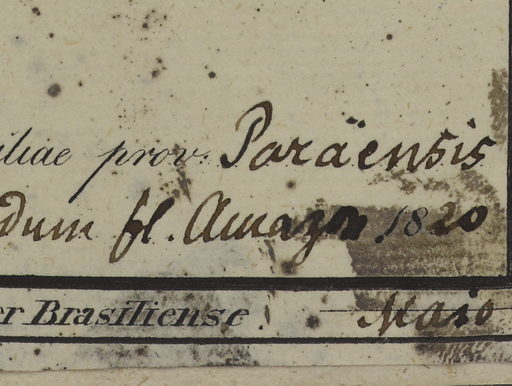 iliae prov. Paräensis
dum fl. Amazon 1820
er Brasiliense. Maio